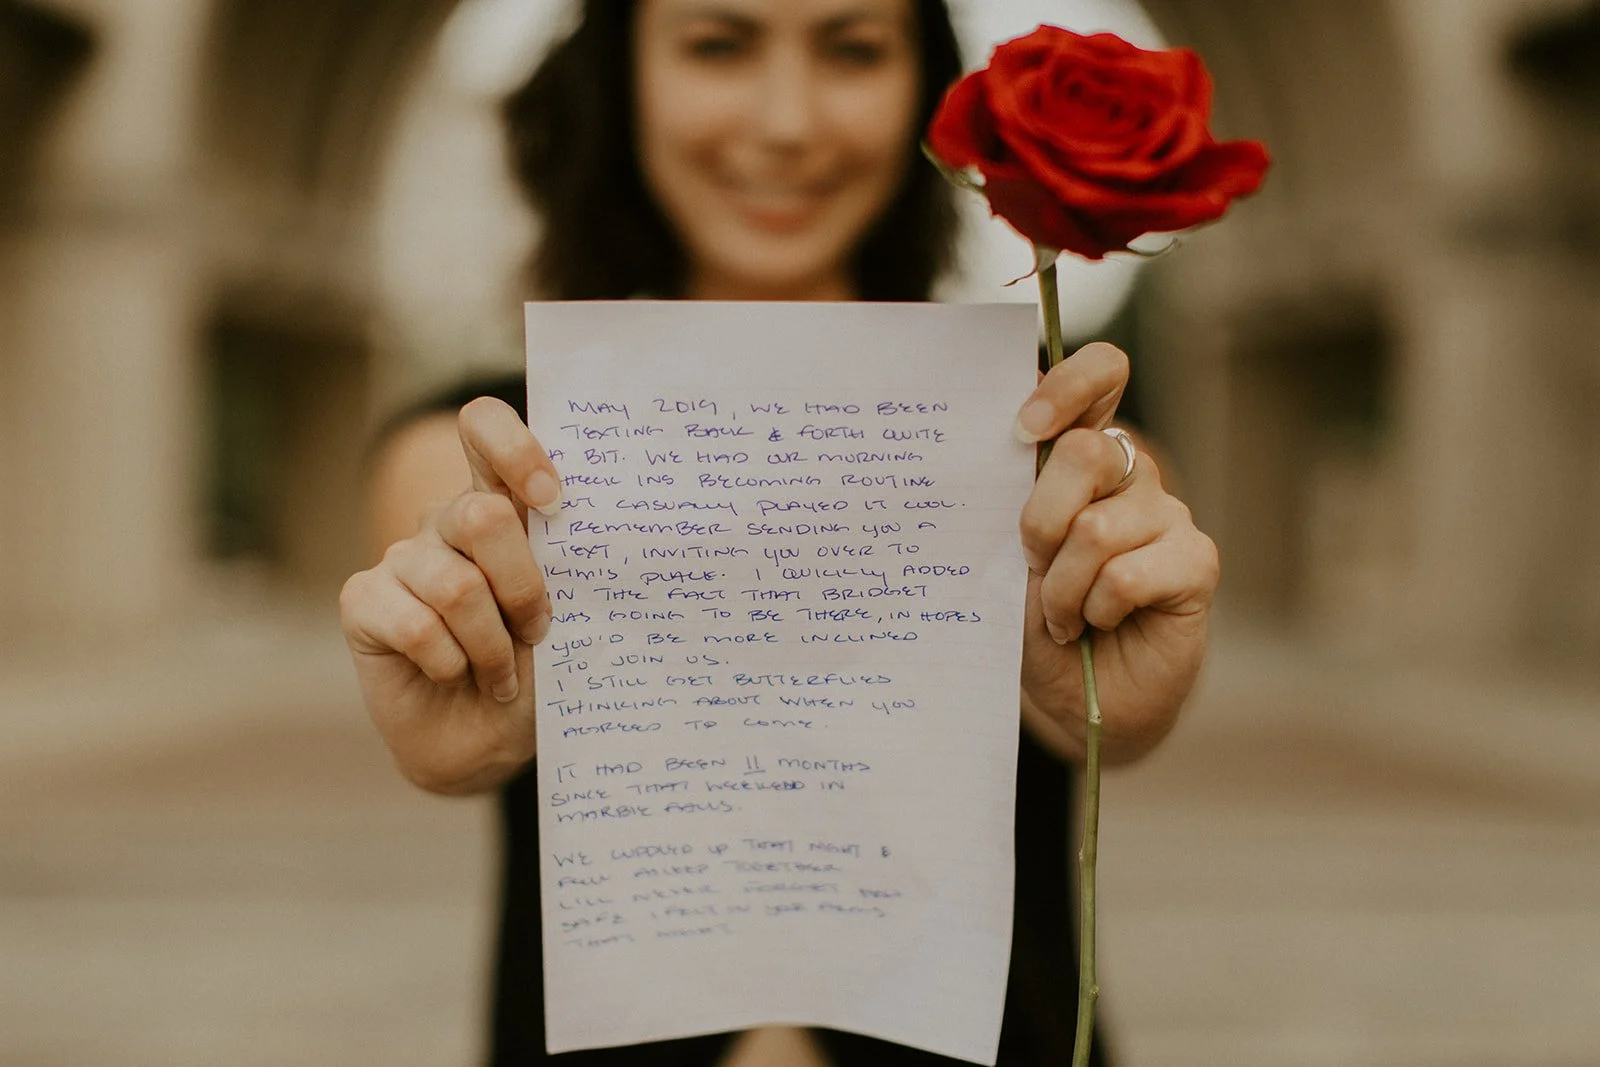 MAY 2019, WE HAD BEEN
TEXTING BACK & FORTH QUITE
A BIT. WE HAD OUR MORNING
CHECK INS BECOMING ROUTINE
BUT CASUALLY PLAYED IT COOL.
I REMEMBER SENDING YOU A
TEXT, INVITING YOU OVER TO
KIMIS PLACE. I QUICKLY ADDED
IN THE FACT THAT BRIDGET
WAS GOING TO BE THERE, IN HOPES
YOU'D BE MORE INCLINED
TO JOIN US.
I STILL GET BUTTERFLIES
THINKING ABOUT WHEN YOU
AGREED TO COME.
IT HAD BEEN 11 MONTHS
SINCE THAT WEEKEND IN
MARBLE FALLS.
WE CUDDLED UP THAT NIGHT &
FELL ASLEEP TOGETHER
I'LL NEVER FORGET HOW
SAFE I FELT IN YOUR ARMS
THAT NIGHT